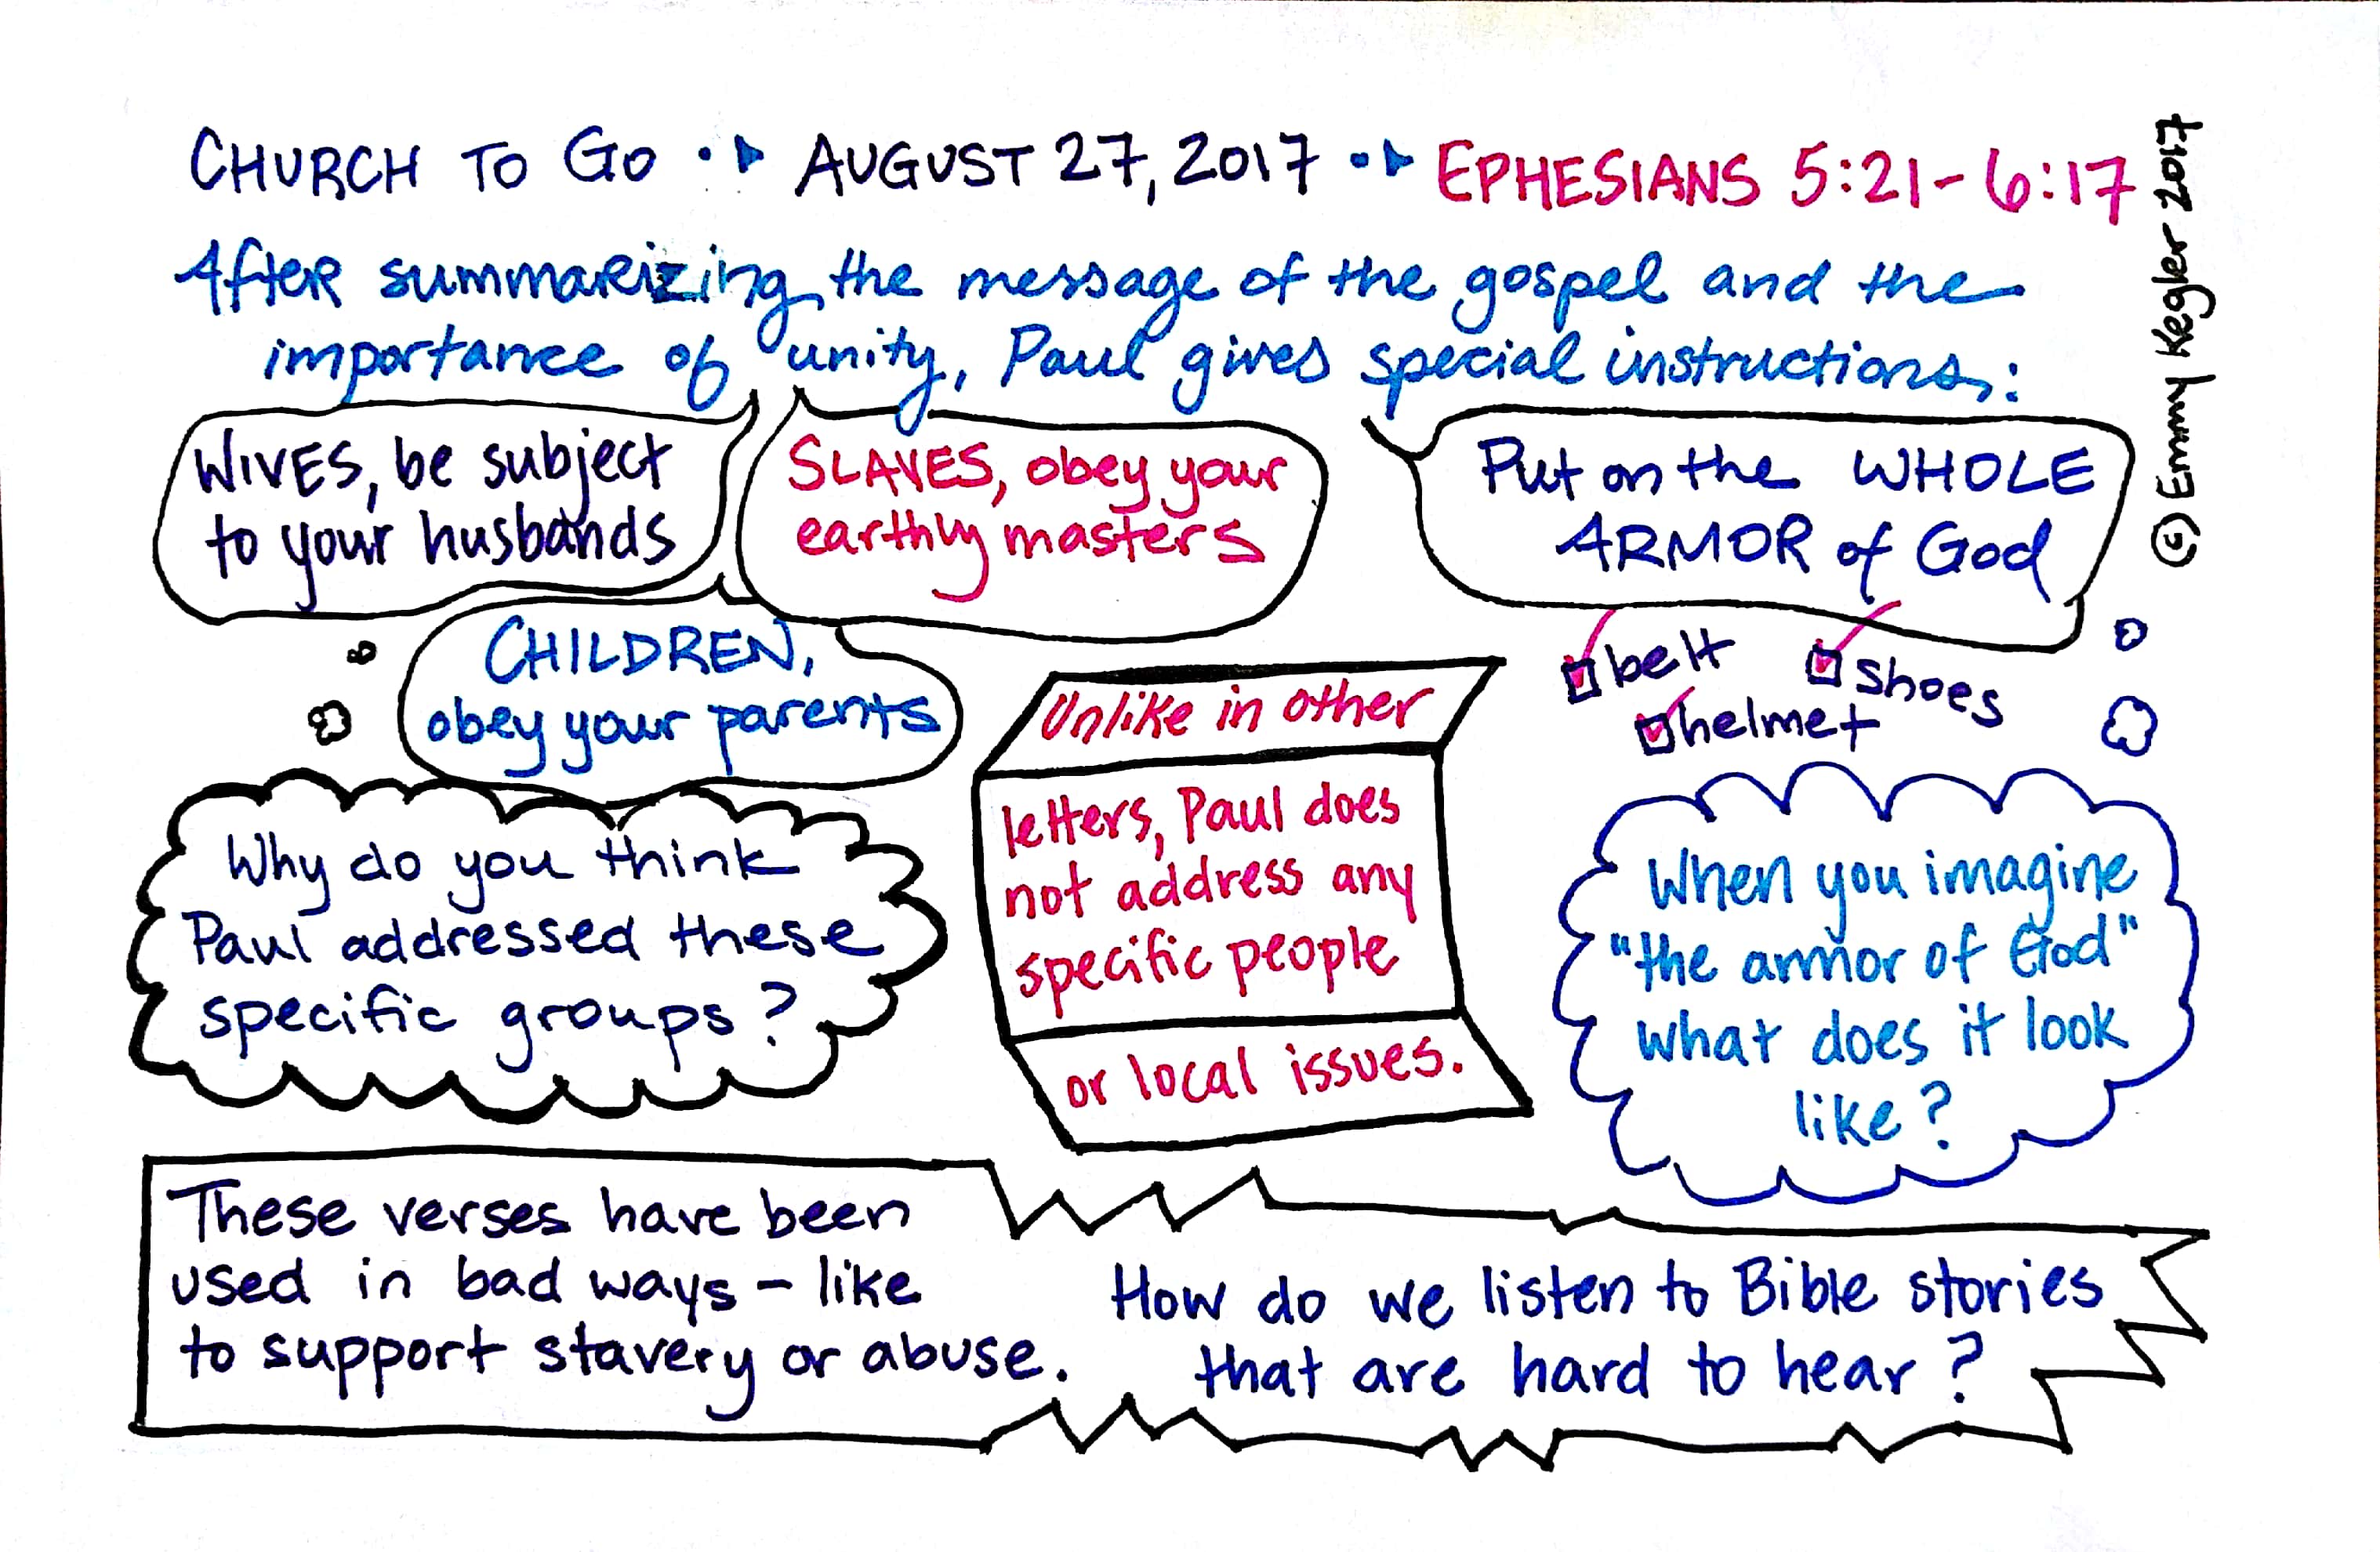 CHURCH TO GO •▸ AUGUST 27, 2017 •▸ EPHESIANS 5:21-6:17
After summarizing the message of the gospel and the
importance of unity, Paul gives special instructions:
WIVES, be subject
to your husbands
SLAVES, obey your
earthly masters
Put on the WHOLE
ARMOR of God
CHILDREN,
obey your parents
belt
shoes
helmet
Unlike in other
letters, Paul does
not address any
specific people
or local issues.
Why do you think
Paul addressed these
specific groups?
When you imagine
"the armor of God"
what does it look
like?
These verses have been
used in bad ways - like
to support slavery or abuse.
How do we listen to Bible stories
that are hard to hear?
© Emmy Kegler 2017